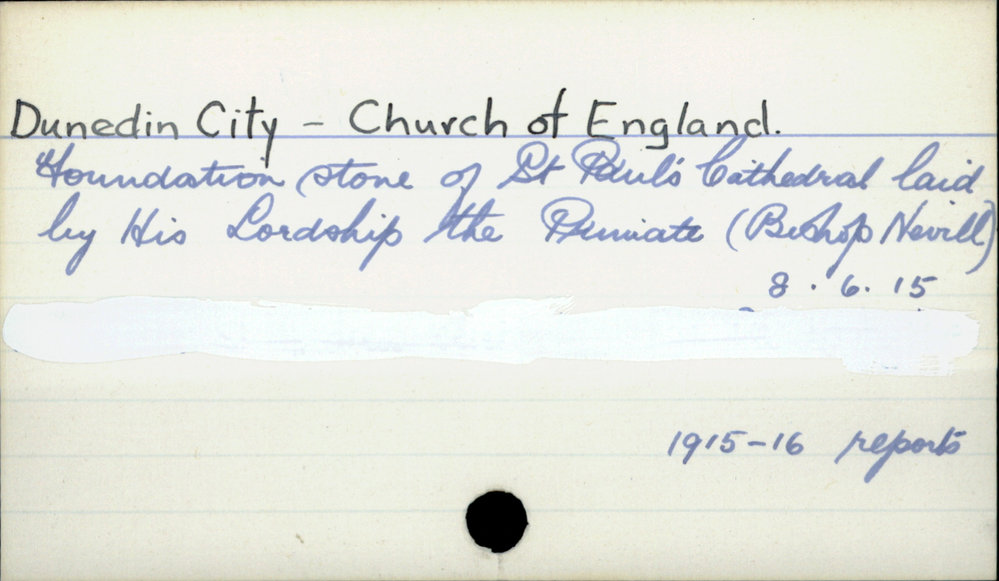 Dunedin City - Church of England.
Foundation stone of St Paul's Cathedral laid
by His Lordship the Primate (Bishop Nevill)
8.6.15
1915-16 reports